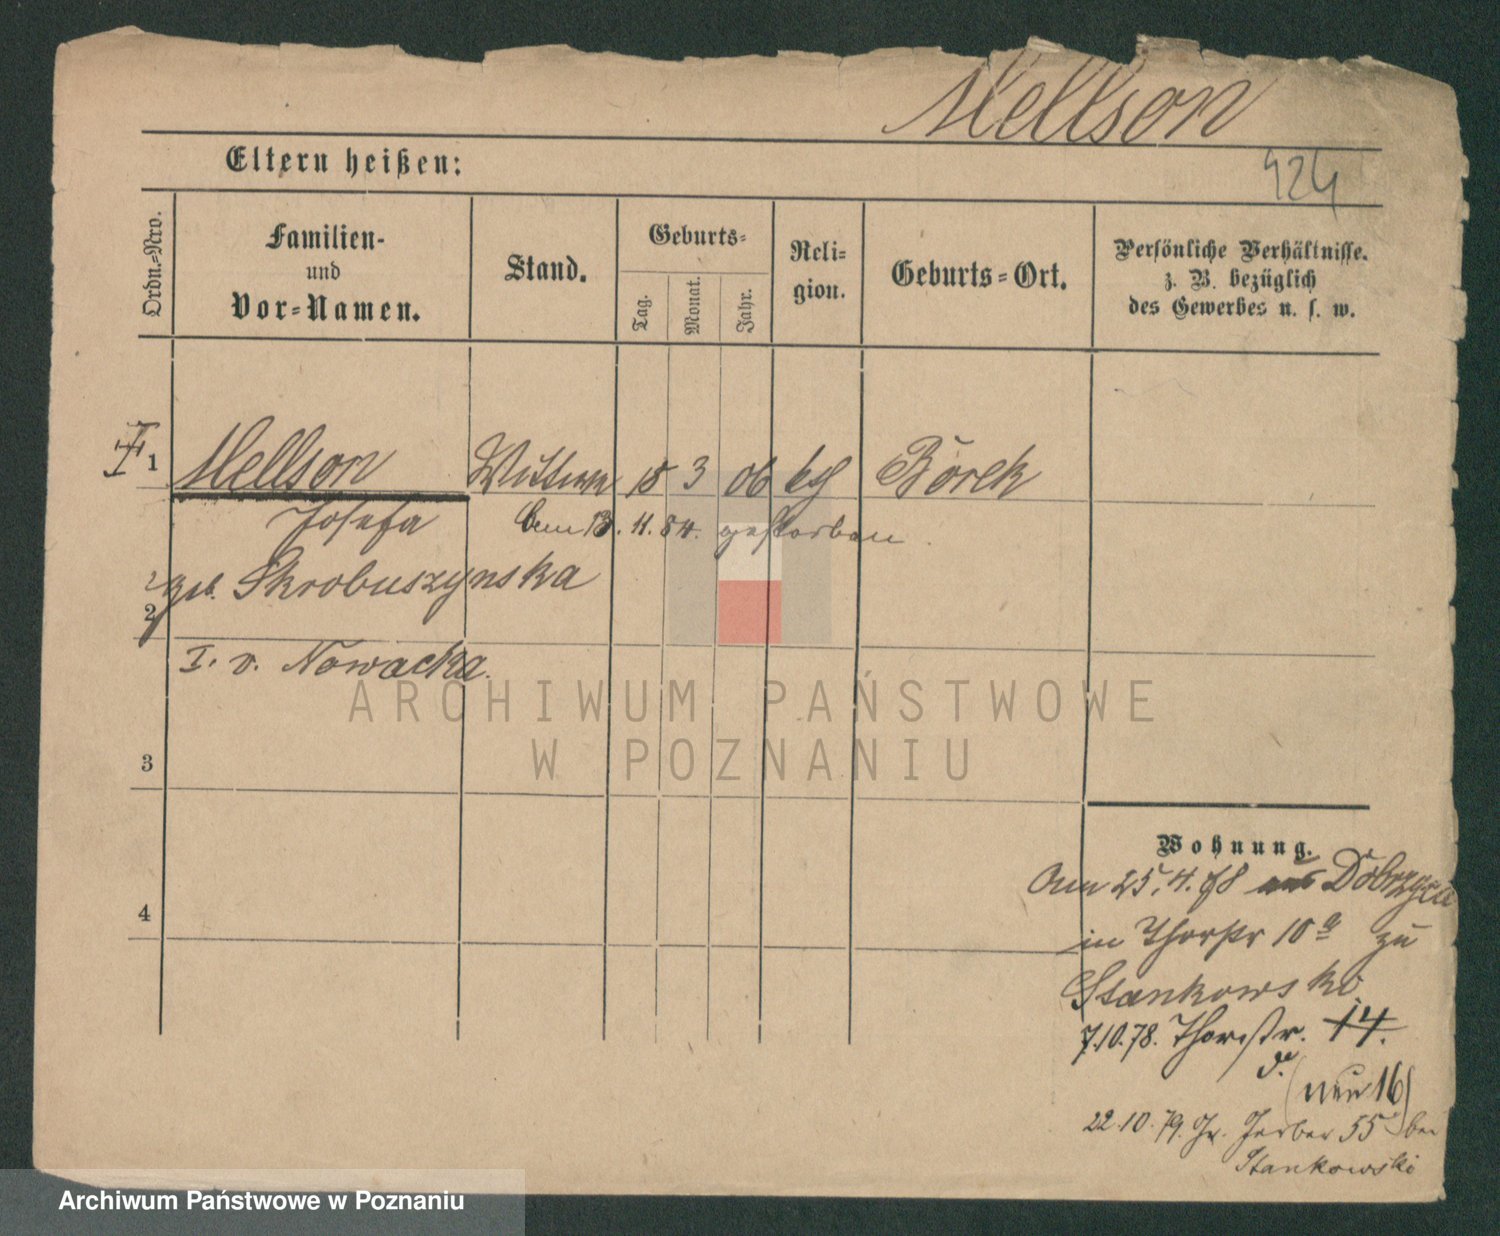 Mellson
424
Eltern heißen:
Ordn.-Nro.
Familien-
und
Vor-Namen.
Stand.
Geburts-
Tag.
Monat.
Jahr.
Reli-
gion.
Geburts-Ort.
Persönliche Verhältnisse.
z. B. bezüglich
des Gewerbes u. s. w.
1 Mellson Wittwe 18 3 06 kth Borek
Josefa am 13. 11. 84. gestorben.
geb. Skrobuszynska
2
I. v. Nowacka.
ARCHIWUM PAŃSTWOWE
W POZNANIU
3
Wohnung.
Am 25. 4. 78 aus Dobrzyca
4
in Thorstr 10 a zu
Stankowski
7.10.78. Thorstr. 14.
(nun 16)
22.10.79. Gr. Gerber 55 bei
Stankowski
Archiwum Państwowe w Poznaniu